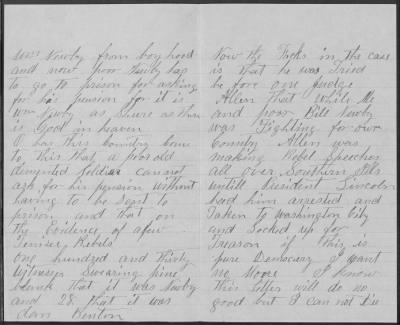 Wm Newby from boy hood
and now poor Newby has
to go to prison for asking
for his pension for it is
Wm Newby as Shure as there
is God in heaven
O has this Country come
to this that a poor old
demented Soldier cannot
ask for his pension without
having to be Sent to
prison and that on
the Evidence of a few
Tennisy Rebels
one hundred and thirty
witneses Swearing pine
blank that it was Newby
and 28 that it was
Dan Benton
Now the Facts in the case
is that he was Tried
be fore one Judge
Allen that while Me
and poor Bill Newby
was Fighting for our
Country Allen was
making Rebel Speeches
all over Southern Ills
untill President Lincoln
had him arrested and
Taken to Washington City
and Locked up for
Treason if this is
pure Democracy I want
no Moore I know
this Letter will do no
good but I can not Die